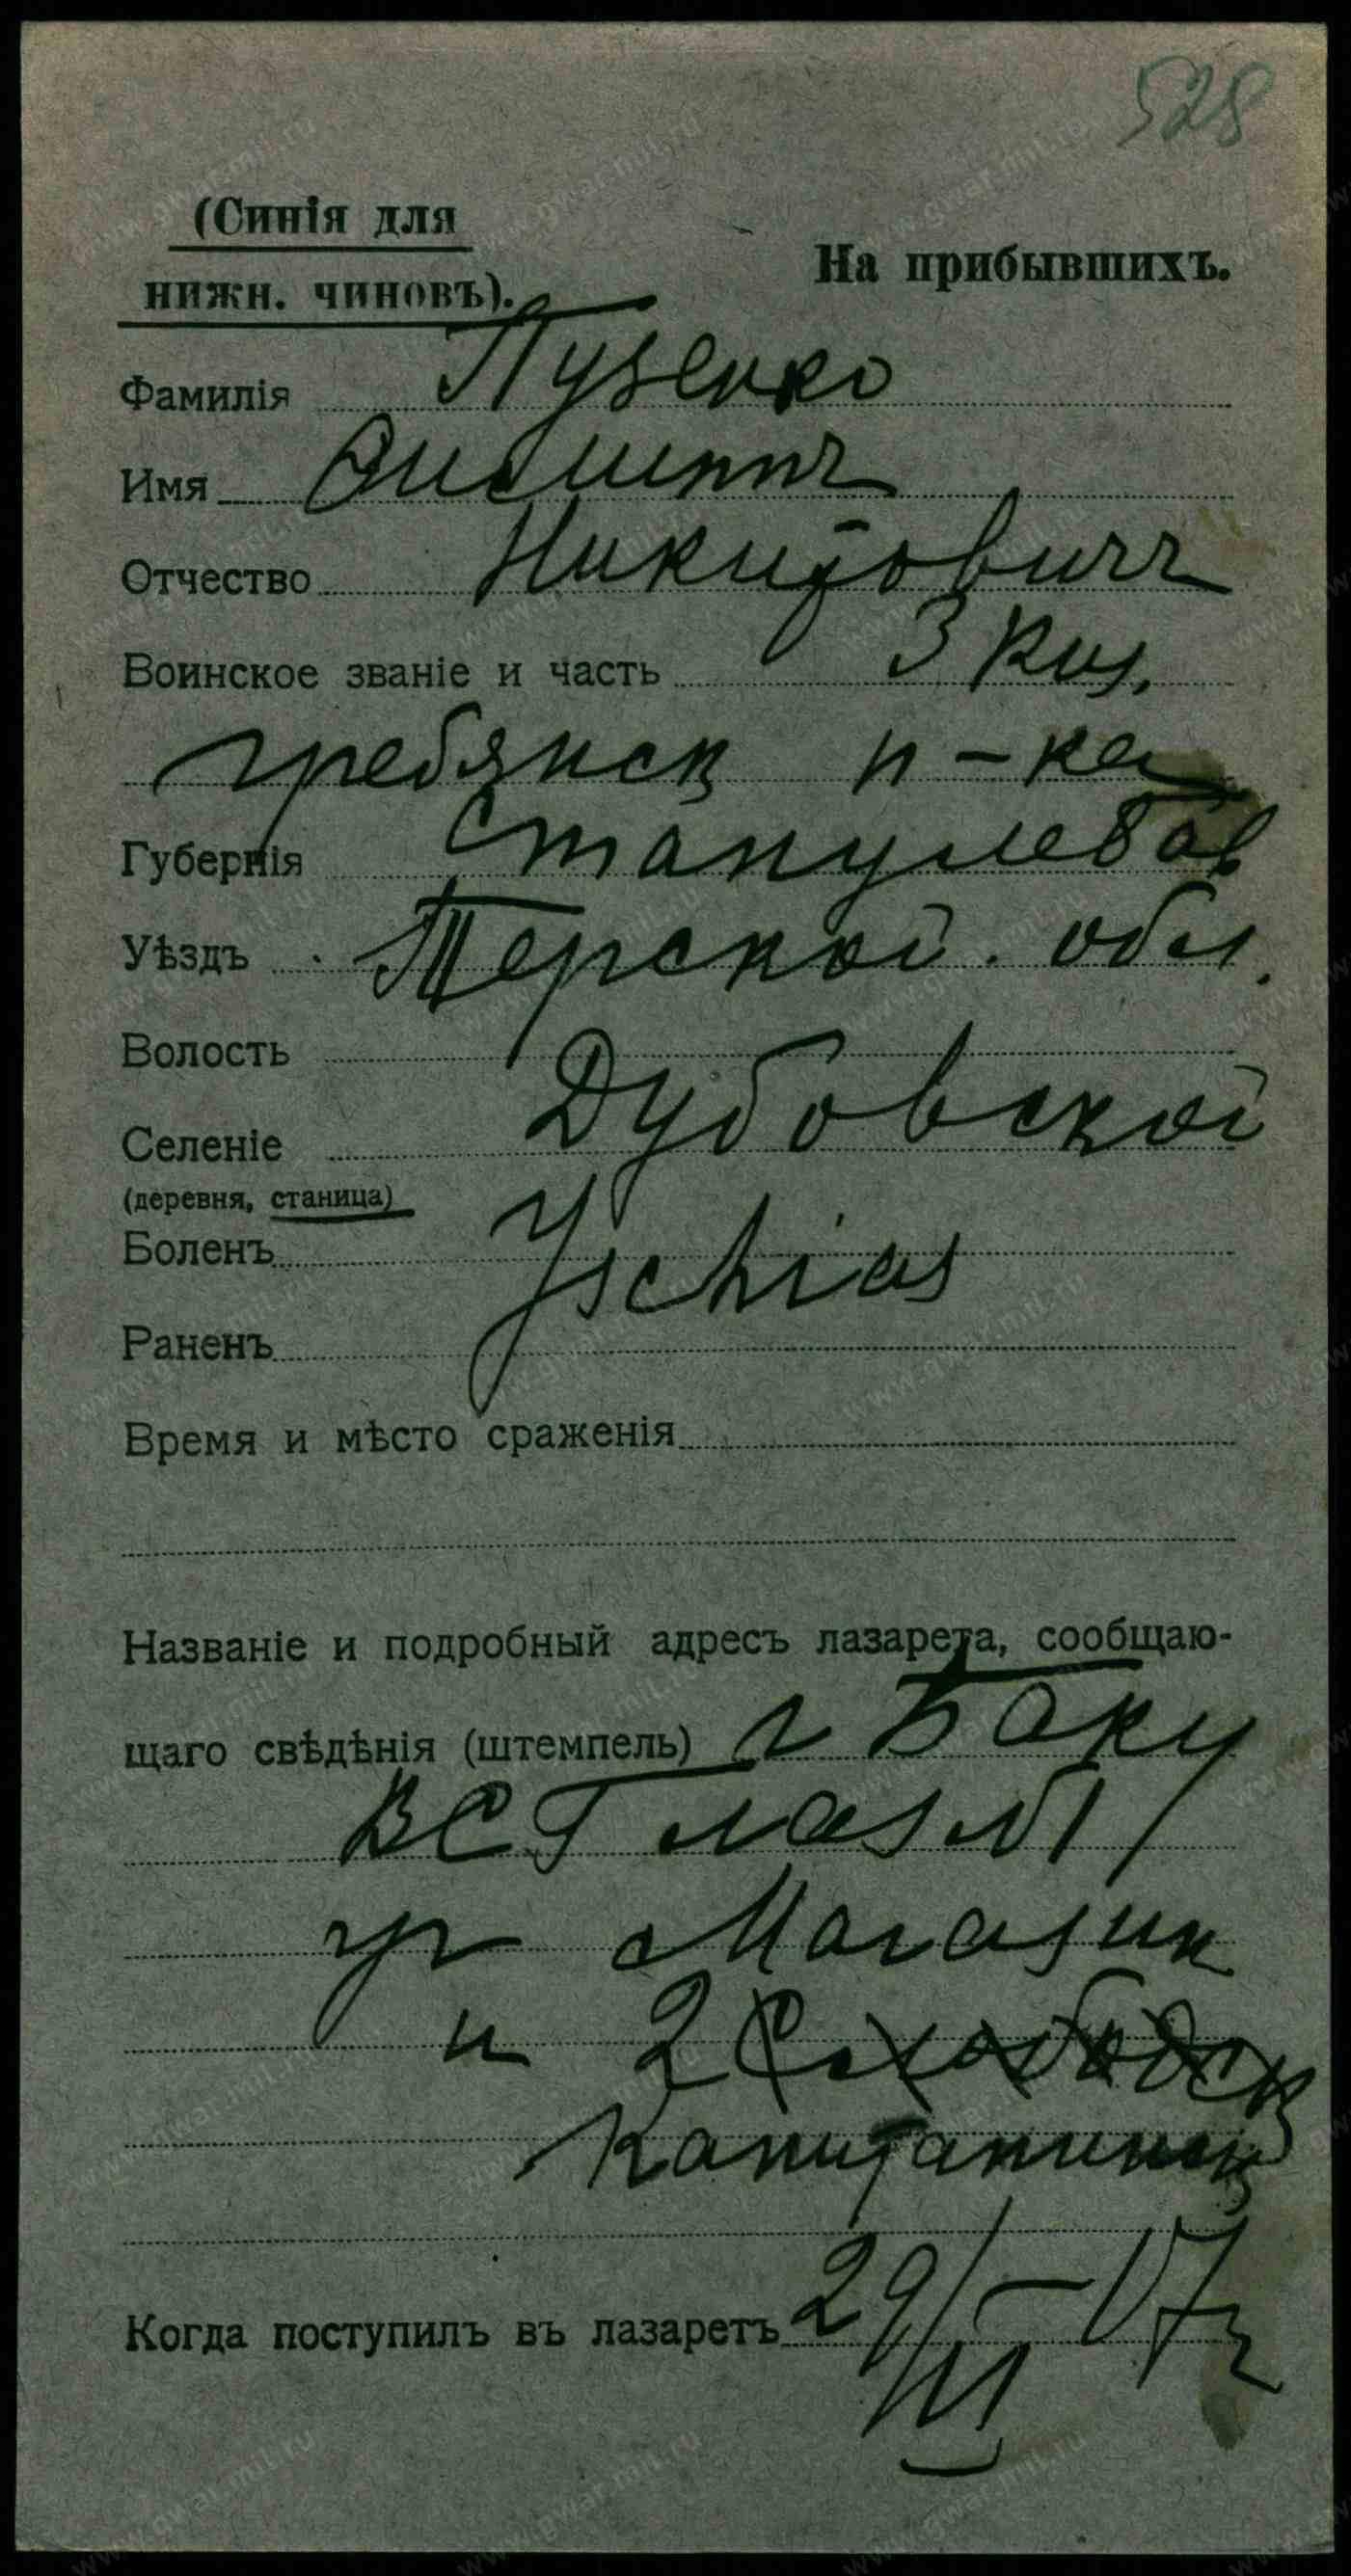 528
(Синія для
нижн. чиновъ).
На прибывшихъ.
Фамилія Пузенко
Имя
Отчество Никитовичъ
Воинское званіе и часть 3 Киз.
гребянск п-ка
Губернія
Уѣздъ Терской обл.
Волость
Селеніе Дубовской
(деревня, станица)
Боленъ Ischias
Раненъ
Время и мѣсто сраженія
Названіе и подробный адресъ лазарета, сообщаю-
щаго свѣдѣнія (штемпель) г Баку
ВСГ лаз №1
уг Магазин
и 2 Слободск
Капитанинск
Когда поступилъ въ лазаретъ 29/III – 17 г